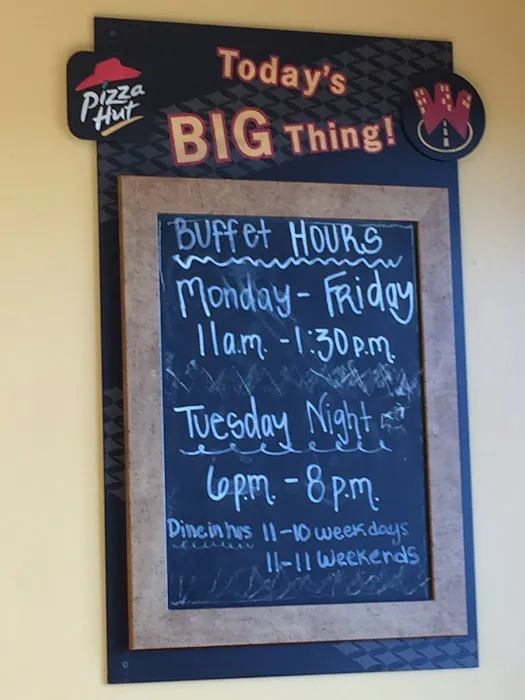 Today's
BIG Thing!
Pizza
Hut
W
Buffet HOURS
Monday - Friday
11a.m. - 1:30p.m.
Tuesday Night
6p.m. - 8p.m.
Dine in hrs 11-10 weekdays
11-11 Weekends